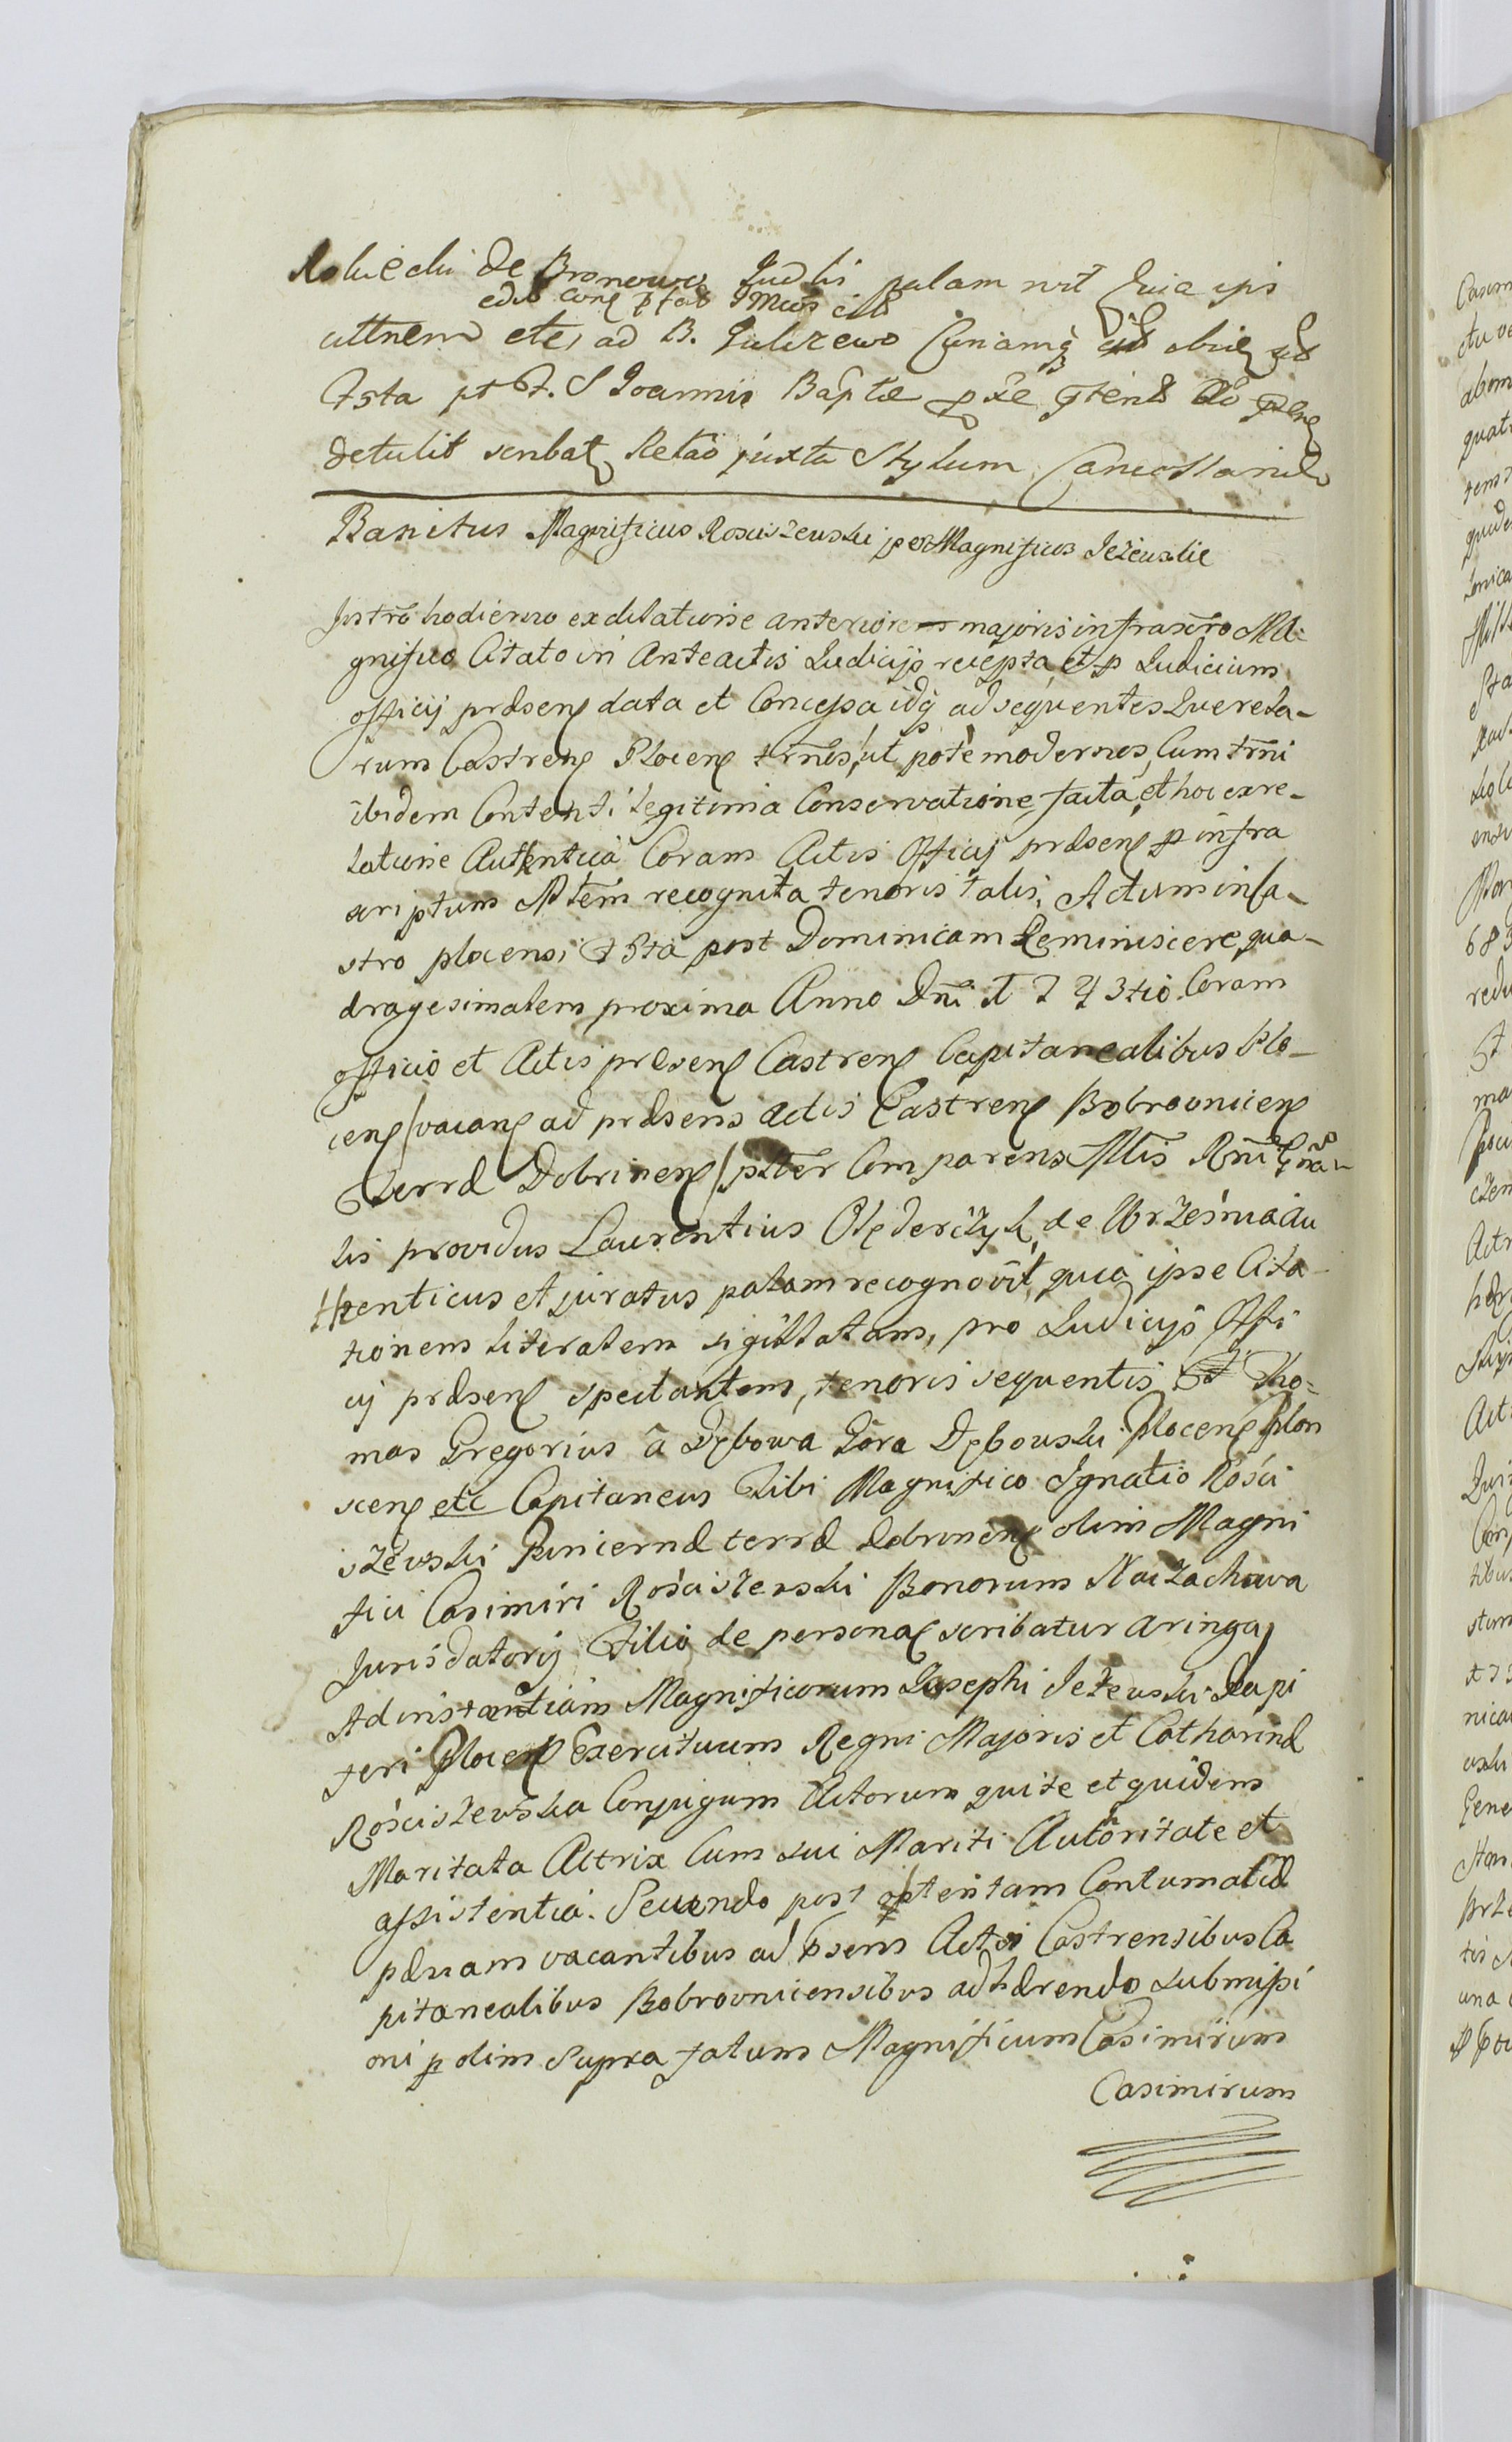 de Bronowo Judlii palam rvit Quia ipse
attnem etc, ad B. Gulczewo
f5ta pt F. S Joannis Baptae
detulit scribat Relaõ juxta Stylum Cancellariae
Banitus Magnificus Rosciszewski per Magnificos Jeżewskie
Intrõ hodierno ex dilatione anteriore majoris infrascrõ Ma-
gnifico Citato in anteactis Judicijs recepta et p Judicium
officij praesens data et Concessa idq ad sequentes Querela-
rum Castrens Plocens trnos, ut pote modernos, Cum trni
ibidem Contenti legitima Conservatione facta, et hoc ex re-
latione Autentica Coram Actis Officij praesens p infra
scriptum Mtem recognita tenoris talis, Actum in Ca-
stro plocensi f5ta post Dominicam Reminiscere qua-
dragesimalem proxima Anno Dni 1743tio Coram
officio et Actis praesens Castrens Capitanealibus Plo-
cens /vacans ad praesens actis Castrens Bobrovnicens
Terrae Dobrinens/ pliter Comparens Mtis Rni Gna-
lis providus Laurentius Olęderczyk, de Września Au
thenticus et juratus palam recognovit, quia ipse Cita-
tionem literalem sigillatam, pro Judicijs Offi
cij praesens spectantem, tenoris sequentis Tho-
mas Gregorius â Dębowa Góra Dębowski Plocens Plon
scens etc Capitaneus Tibi Magnifico Ignatio Rości
szewski Pincernae terrae Dobrinens olim Magni
fici Casimiri Rościszewski Bonorum Naczachowa
Jurisdatorij Filio de personas scribatur aringa,
Ad instantiam Magnificorum Josephi Jeżewski Dapi
feri Plocens Exercituum Regni Majoris et Catharinae
Rościszewska Conjugum Actorum quite et quidem
Maritata Actrix Cum sui Mariti Autoritate et
assistentia. Secundo post obtentam Contumaciae
paenam vacantibus ad psens Actis Castrensibus Ca
pitanealibus Bobrovnicensibus adhaerendo submissi
oni p olim Supra fatum Magnificum Casimirum
Casimirum